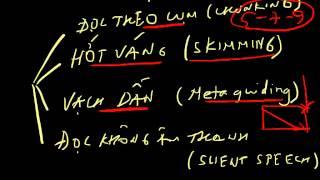 ĐỌC THEO CỤM (CHUNKING) 5-7-9
HỐT VÀNG (SKIMMING)
VẠCH DẪN (Meta guiding)
ĐỌC KHÔNG ÂM THANH
(SLIENT SPEECH)